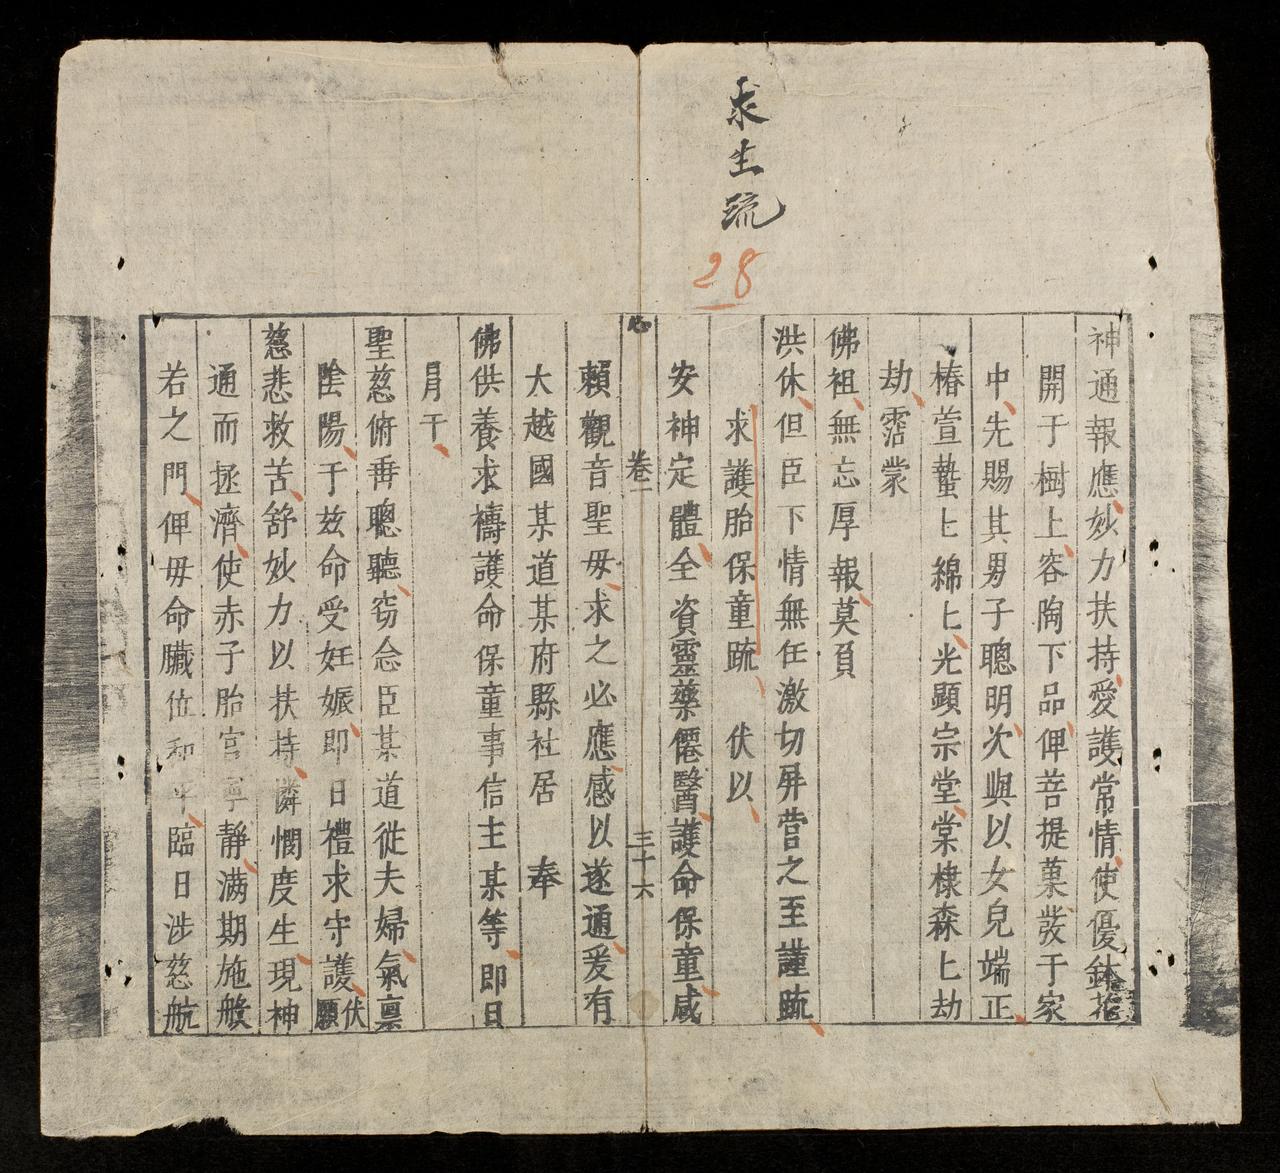 求生疏
28
神通報應妙力扶持愛護常情使優鉢花
開于樹上容陶下品俾菩提菓發于家
中先賜其男子聰明次與以女皃端正
椿萱蟄〻綿〻光顯宗堂棠棣森〻劫
劫霑蒙
佛祖無忘厚報莫負
洪休但臣下情無任激切屏营之至謹䟽
求護胎保童䟽 伏以
安神定體全資靈藥僊醫護命保童咸
心 卷一 三十六
賴觀音聖母求之必應感以遂通爰有
大越國某道某府縣社居 奉
佛供養求禱護命保童事信主某等即日
㫖干
聖慈俯垂聰聽窃念臣某道從夫婦氣禀
陰陽于兹命受妊娠即日禮求守護伏願
慈悲救苦舒妙力以扶持憐憫度生現神
通而拯濟使赤子胎宫寧靜满期施般
若之門俾母命臟位和平臨日涉慈航